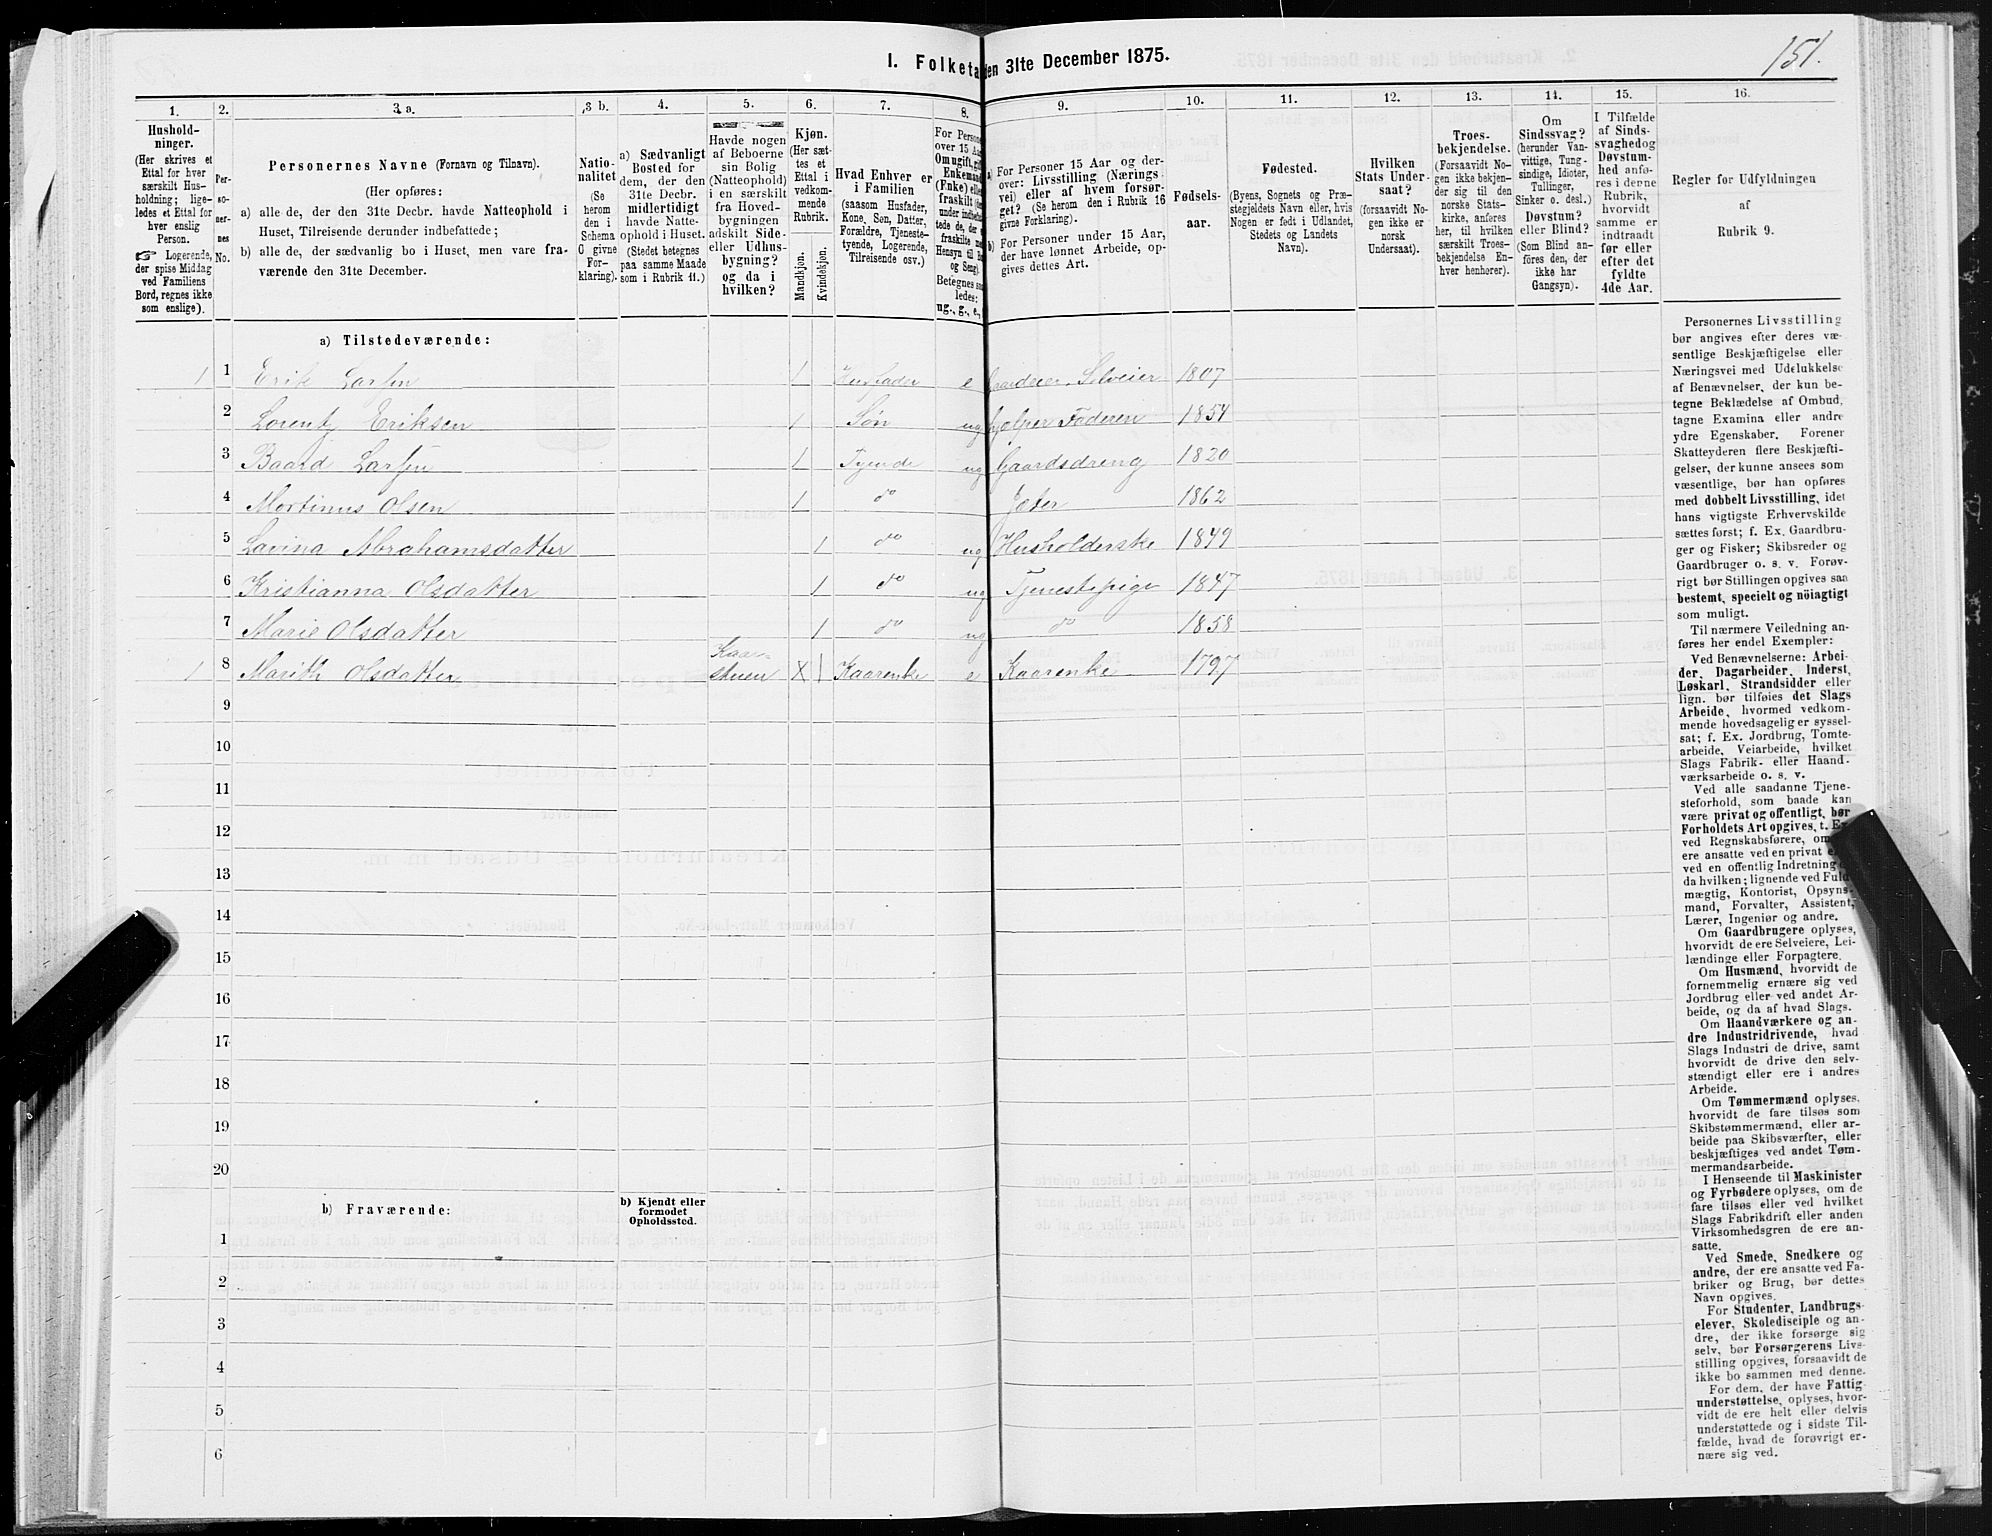 151.
I. Folketa
den 31te December 1875.
1.
2.
3 a.
3 b.
4.
5.
6.
7.
8.
9.
10.
11.
12.
13.
14.
15.
16.
Hushold-
ninger.
(Her skrives et
Ettal for hver
særskilt Hus-
holdning; lige-
ledes et Ettal for
hver enslig
Person.
☞ Logerende,
der spise Middag
ved Familiens
Bord, regnes ikke
som enslige).
Per-
so-
ner-
nes
No.
Personernes Navne (Fornavn og Tilnavn).
(Her opføres:
a) alle de, der den 31te Decbr. havde Natteophold i
Huset, Tilreisende derunder indbefattede;
b) alle de, der sædvanlig bo i Huset, men vare fra-
værende den 31te December.
Natio-
nalitet
(Se
herom
den i
Schema
O givne
For-
klaring).
a) Sædvanligt
Bosted for
dem, der den
31te Decbr.
midlertidigt
havde Natte-
ophold i Huset.
(Stedet betegnes
paa samme Maade
som i Rubrik 11.)
Havde nogen
af Beboerne
sin Bolig
(Natteophold)
i en særskilt
fra Hoved-
bygningen
adskilt Side-
eller Udhus-
bygning?
og da i
hvilken?
Kjøn.
(Her sæt-
tes et
Ettal i
vedkom-
mende
Rubrik.
Mandkjøn.
Kvindekjøn.
Hvad Enhver er
i Familien
(saasom Husfader,
Kone, Søn, Datter,
Forældre, Tjeneste-
tyende, Logerende,
Tilreisende osv.)
For Person
over 15 Aar
Om ugift, gift
Enkemand
(Enke) eller
fraskilt
under indbefat-
tede de, der
fraskilte
Hensyn til B
og Seng).
Betegnes saa
ledes:
ug., g., e.,
a) For Personer 15 Aar og der-
over: Livsstilling (Nærings
vei) eller af hvem forsør-
get? (Se herom den i Rubrik 16
givne Forklaring).
b) For Personer under 15 Aar,
der have lønnet Arbeide, op-
gives dettes Art.
Fødsels-
aar.
Fødested.
(Byens, Sognets og Præ-
stegjeldets Navn eller, hvis
Nogen er født i Udlandet,
Stedets og Landets
Navn).
Hvilken
Stats Under-
saat?
(forsaavidt No-
gen ikke er
norsk
Undersaat).
Troes-
bekjendelse.
(Forsaavidt No-
gen ikke bekjen-
der sig til den
norske Stats-
kirke, anføres
her, til hvilken
særskilt Troes-
bekjendelse En-
hver henhører).
Om
Sindssvag?
(herunder Van-
vittige, Tung-
sindige, Idioter,
Tullinger,
Sinker o. desl.)
Døvstum?
eller Blind?
(Som Blind an-
føres den, der
ikke har
Gangsyn).
I Tilfælde
af Sinds-
svaghed og
Døvstum-
hed anfø-
res i denne
Rubrik,
hvorvidt
samme er
indtraadt
før eller
efter det
fyldte
4de Aar.
Regler for Udfyldningen
af
Rubrik 9.
a) Tilstedeværende:
1 1 Erik Larsen 1 Husfader e Gaardeier, Selveier 1807
2 Lorents Eriksen 1 Søn ug hjælper Faderen 1854
3 Baard Larsen 1 Tyende ug Gaardsdreng 1820
4 Martinus Olsen 1 do Jæter 1862
5 Lavina Abrahamsdatter 1 do ug Husholderske 1849
6 Kristianna Olsdatter 1 do ug Tjenestepige 1847
7 Marie Olsdatter 1 do ug do 1858
1 8 Marith Olsdatter Kaar-
stuen X 1 Kaarenke e Kaarenke 1797
9
10
11
12
13
14
15
16
17
18
19
20
b) Fraværende:
b) Kjendt eller
formodet
Opholdssted.
1
2
3
4
5
6
Personernes Livsstilling
bør angives efter deres væ-
sentlige Beskjæftigelse eller
Næringsvei med Udelukkelse
af Benævnelser, der kun be-
tegne Beklædelse af Ombud,
tagne Examina eller andre
ydre Egenskaber. Forener
Skatteyderen flere Beskjæfti-
gelser, der kunne ansees som
væsentlige, bør han opføres
med dobbelt Livsstilling, idet
hans vigtigste Erhvervskilde
sættes først; f. Ex. Gaardbru-
ger og Fisker; Skibsreder og
Gaardbruger o. s. v. Forøv-
rigt bør Stillingen opgives saa
bestemt, specielt og nøiagtigt
som muligt.
Til nærmere Veiledning an-
føres her endel Exempler:
Ved Benævnelserne: Arbei-
der, Dagarbeider, Inderst,
Løskarl, Strandsidder eller
lign. bør tilføies det Slags
Arbeide, hvormed vedkom-
mende hovedsagelig er syssel-
sat; f. Ex. Jordbrug, Tomte-
arbeide, Veiarbeide, hvilket
Slags Fabrik- eller Haand-
værksarbeide o. s. v.
Ved alle saadanne Tjene-
steforhold, som baade kan
være privat og offentligt, bør
Forholdets Art opgives, t. Ex
ved Regnskabsførere, om
ere ansatte ved en privat e
ved en offentlig Indretning
da hvilken; lignende ved Fuld-
mægtig, Kontorist, Opsyns-
mand, Forvalter, Assistent,
Lærer, Ingeniør og andre.
Om Gaardbrugere oplyses,
hvorvidt de ere Selveiere, Lei-
lændinge eller Forpagtere.
Om Husmænd, hvorvidt de
fornemmelig ernære sig ved
Jordbrug eller ved andet Ar-
beide, og da af hvad Slags.
Om Haandværkere og an-
dre Industridrivende, hvad
Slags Industri de drive, samt
hvorvidt de drive den selv-
stændigt eller ere i andres
Arbeide.
Om Tømmermænd oplyses,
hvorvidt de fare tilsøs som
Skibstømmermænd, eller ar-
beide paa Skibsværfter, eller
beskjæftiges ved andet Tøm-
mermandsarbeide.
I Henseende til Maskinister
og Fyrbødere oplyses, om de
fare tilsøs eller ved hvilket
Slags Fabrikdrift eller anden
Virksomhedsgren de ere an-
satte.
Ved Smede, Snedkere og
andre, der ere ansatte ved Fa-
briker og Brug, bør dettes
Navn opgives.
For Studenter, Landbrugs-
elever, Skoledisciple og an-
dre, der ikke forsørge sig
selv, bør Forsørgerens Livs-
stilling opgives, forsaavidt de
ikke bo sammen med denne.
For dem, der have Fattig-
understøttelse, oplyses, hvor-
vidt de ere helt eller delvis
understøttede og i sidste Til-
fælde, hvad de forøvrigt er-
nære sig ved.